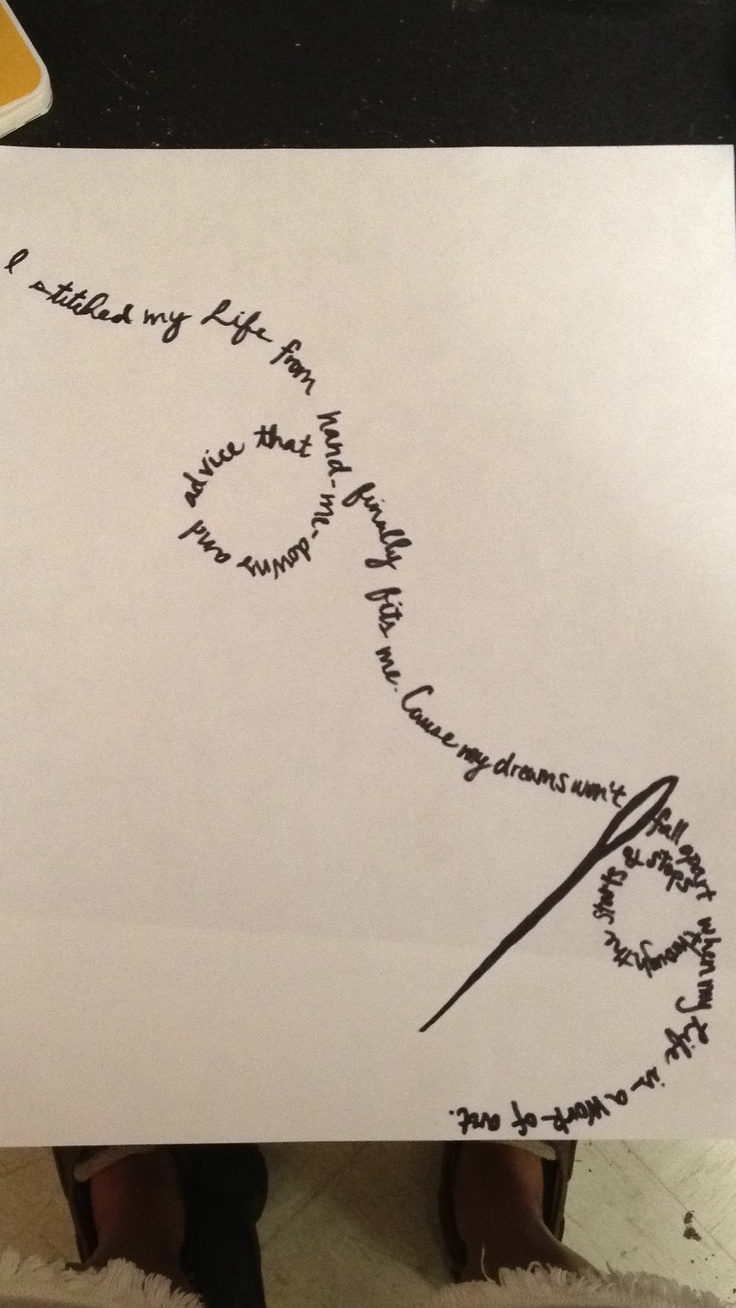 I stitched my Life from hand-me-downs and advice that finally fits me. Cause my dreams won't fall apart through the starts & stops when my life is a work of art.